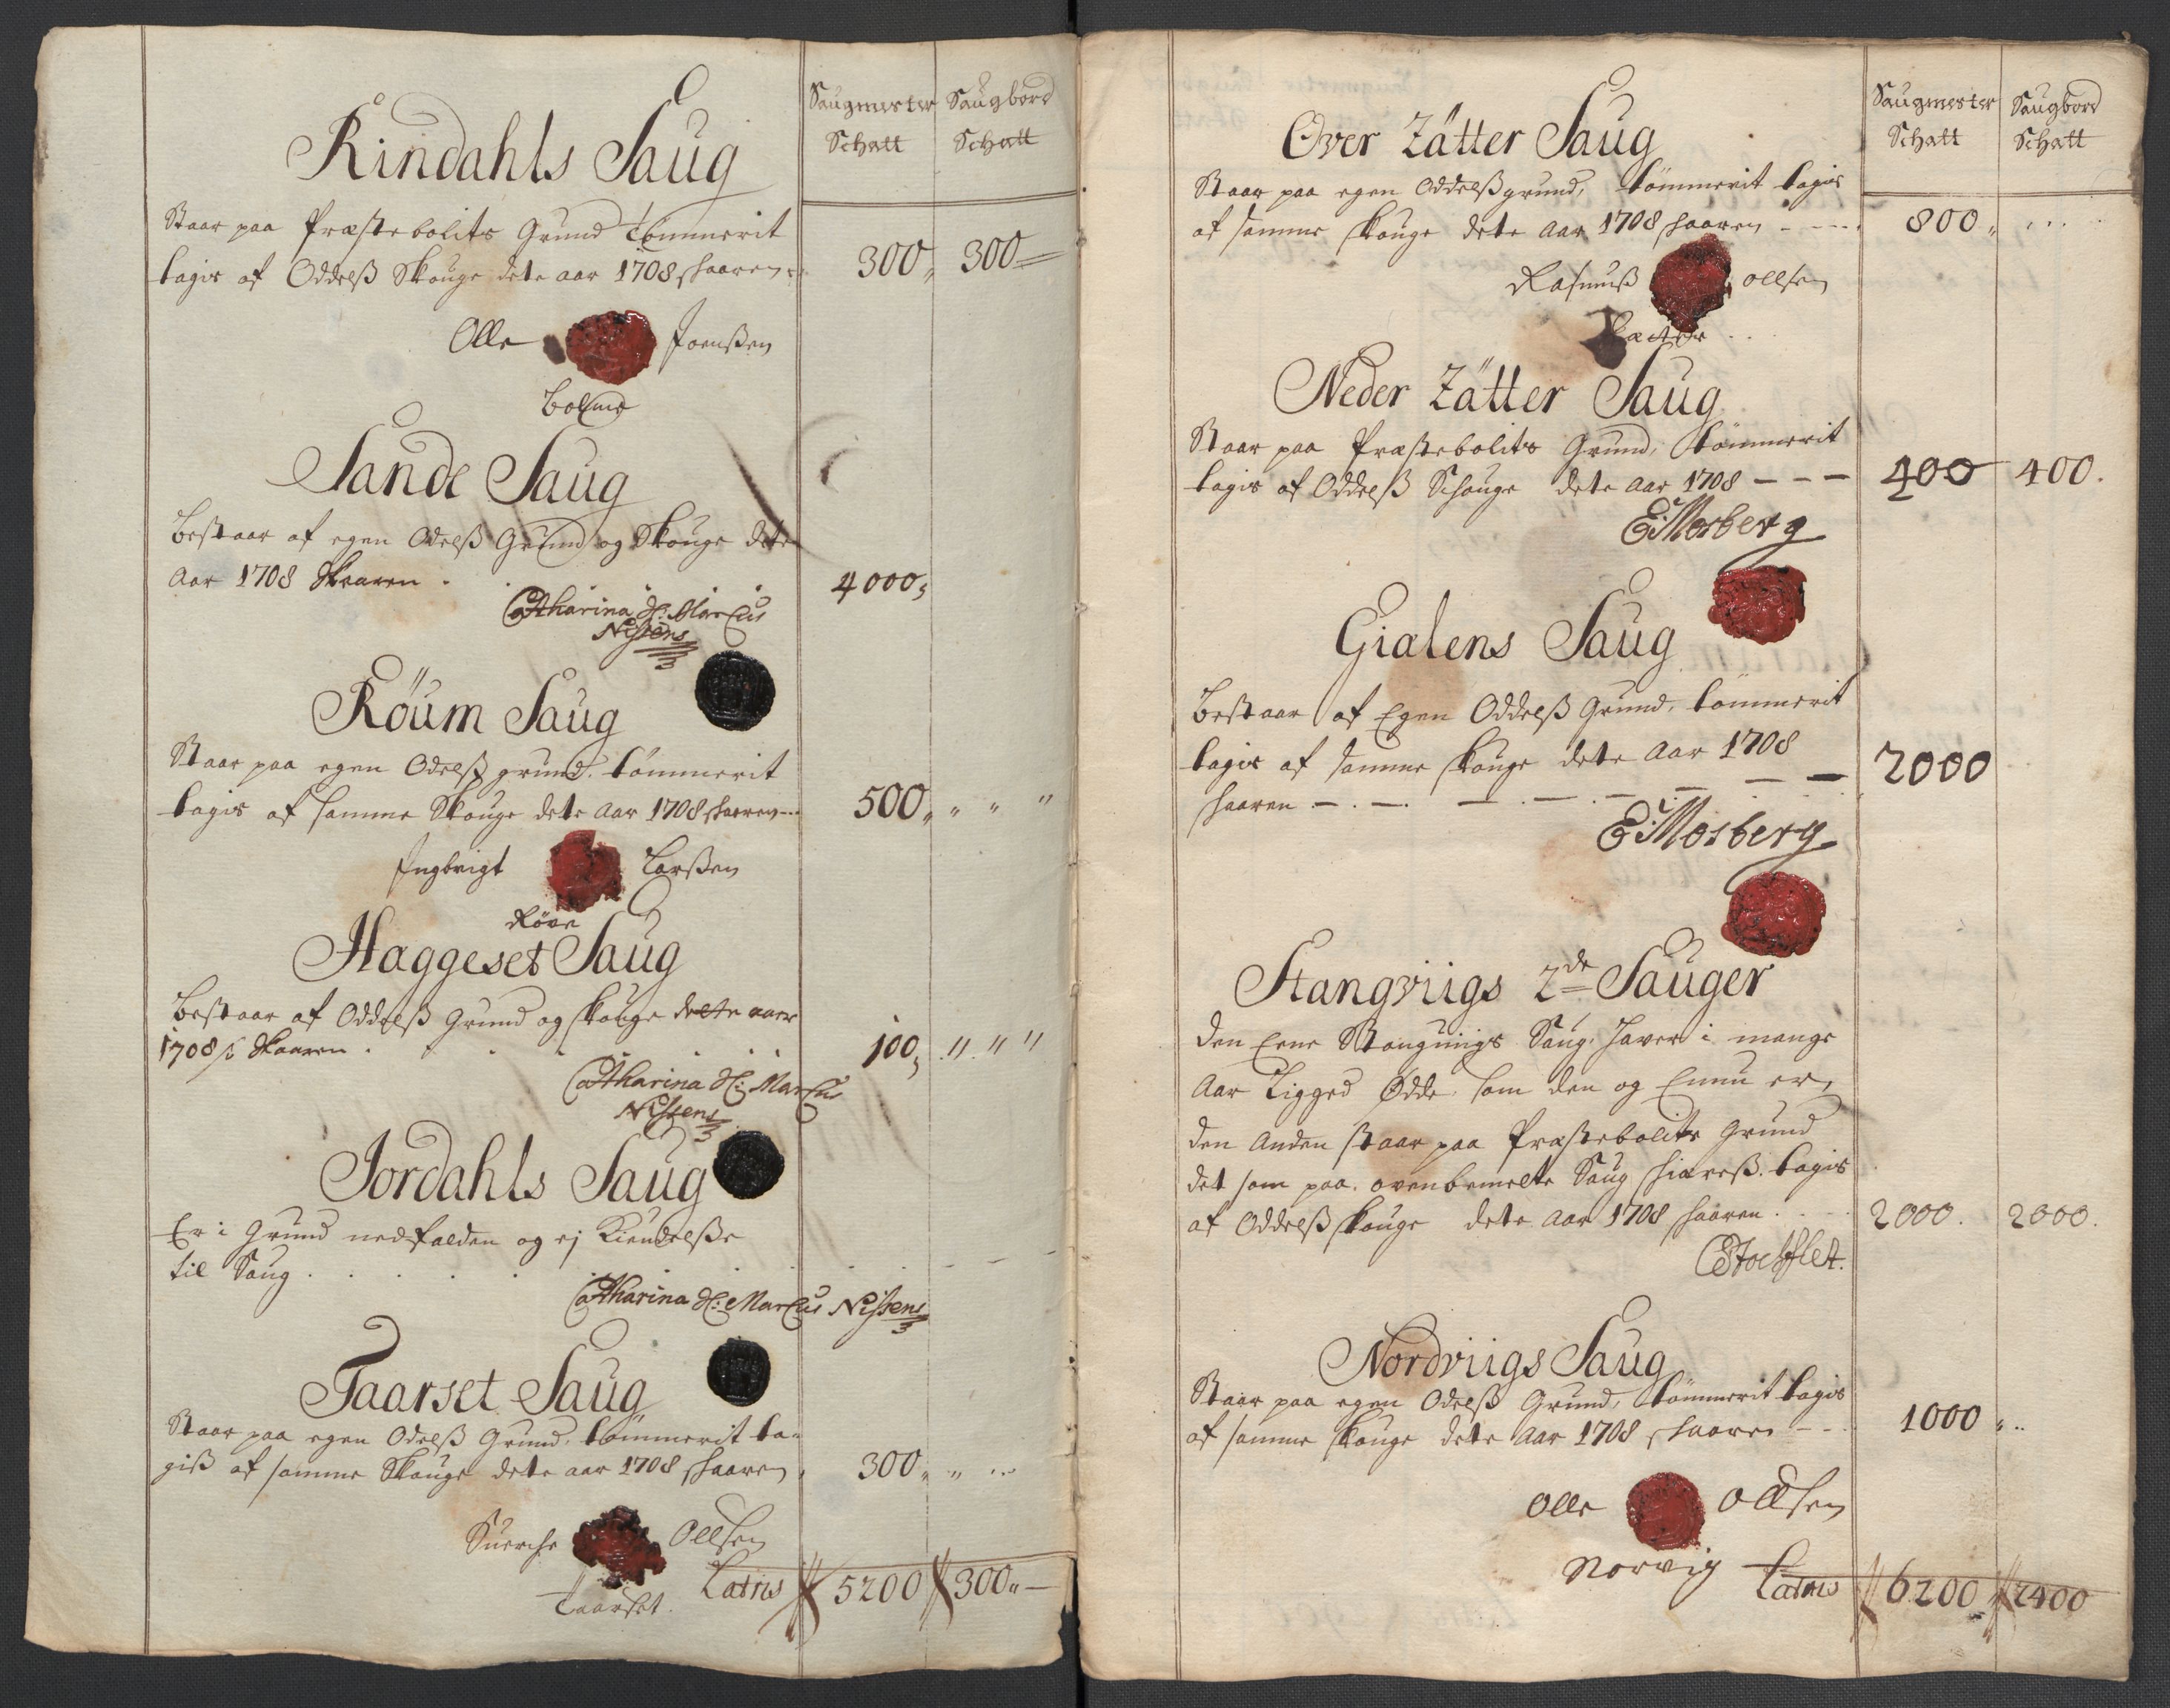 Saugmester Saugbord
Schatt Schatt
Rindahls Saug
Staar paa Præstebolits Grund tömmerit
tagis af Oddelß Skouge dete aar 1708 skaaren 300 300
Olle Joenßen
Bolme
Sande Saug
Bestaar af egen Odelß Grund og Skouge dete
Aar 1708 Skaaren 4000
Catharina Sl: Marcus
Nissens
Röum Saug
Staar paa egen Odelß grund, tömmerit
tagis af samme Skouge dete aar 1708 skaaren 500 " " "
Ingbrigt Larßen
Röen
Haggeset Saug
Bestaar af Oddelß Grund og skouge dette aar
1708 Skaaren 100 " " "
Catharina Sl: Marcus
Nissens
Jordahls Saug
Er i Grund nedfalden og ej Kiendelße
til Saug
Catharina Sl: Marcus Nissens
Taarset Saug
Staar paa egen Odelß Grund, tömmerit ta-
giß af samme Skouge dete aar 1708 skaaren 300
Suerche Ollsen
Taarset
Latus 5200 300
Saugmester Saugbord
Schatt Schatt
Over Zätter Saug
Staar paa egen Oddelßgrund, tömmerit tagis
af samme skouge dete Aar 1708 skaaren 800
Rasmuß Ollsen
Neder Zätter Saug
Staar paa Præstebolits Grund, tömmerit
tagis af Oddelß Schouge dete Aar 1708 - - - 400 400.
E: Mosberg
Gialens Saug
Bestaar af Egen Oddelß Grund, tömmerit
tagis af samme skouge dete Aar 1708
skaaren 2000
E: Mosberg
Stangviigs 2de Sauger
Den Eene Stangviigs Saug, haver i mange
Aar Ligged Ødde som den og Ennu er,
den Anden staar paa Præstebolits Grund
det som paa ovenbemelte Saug skiæreß tagis
af Oddelß skouge dete Aar 1708 skaaren 2000. 2000.
Stochfleth.
Nordviigs Saug
Staar paa egen Odelß Grund, tömmerit tagis
af samme skouge dete Aar 1708 skaaren 1000
Olle Ollsen
Norvig
Latus 6200 2400